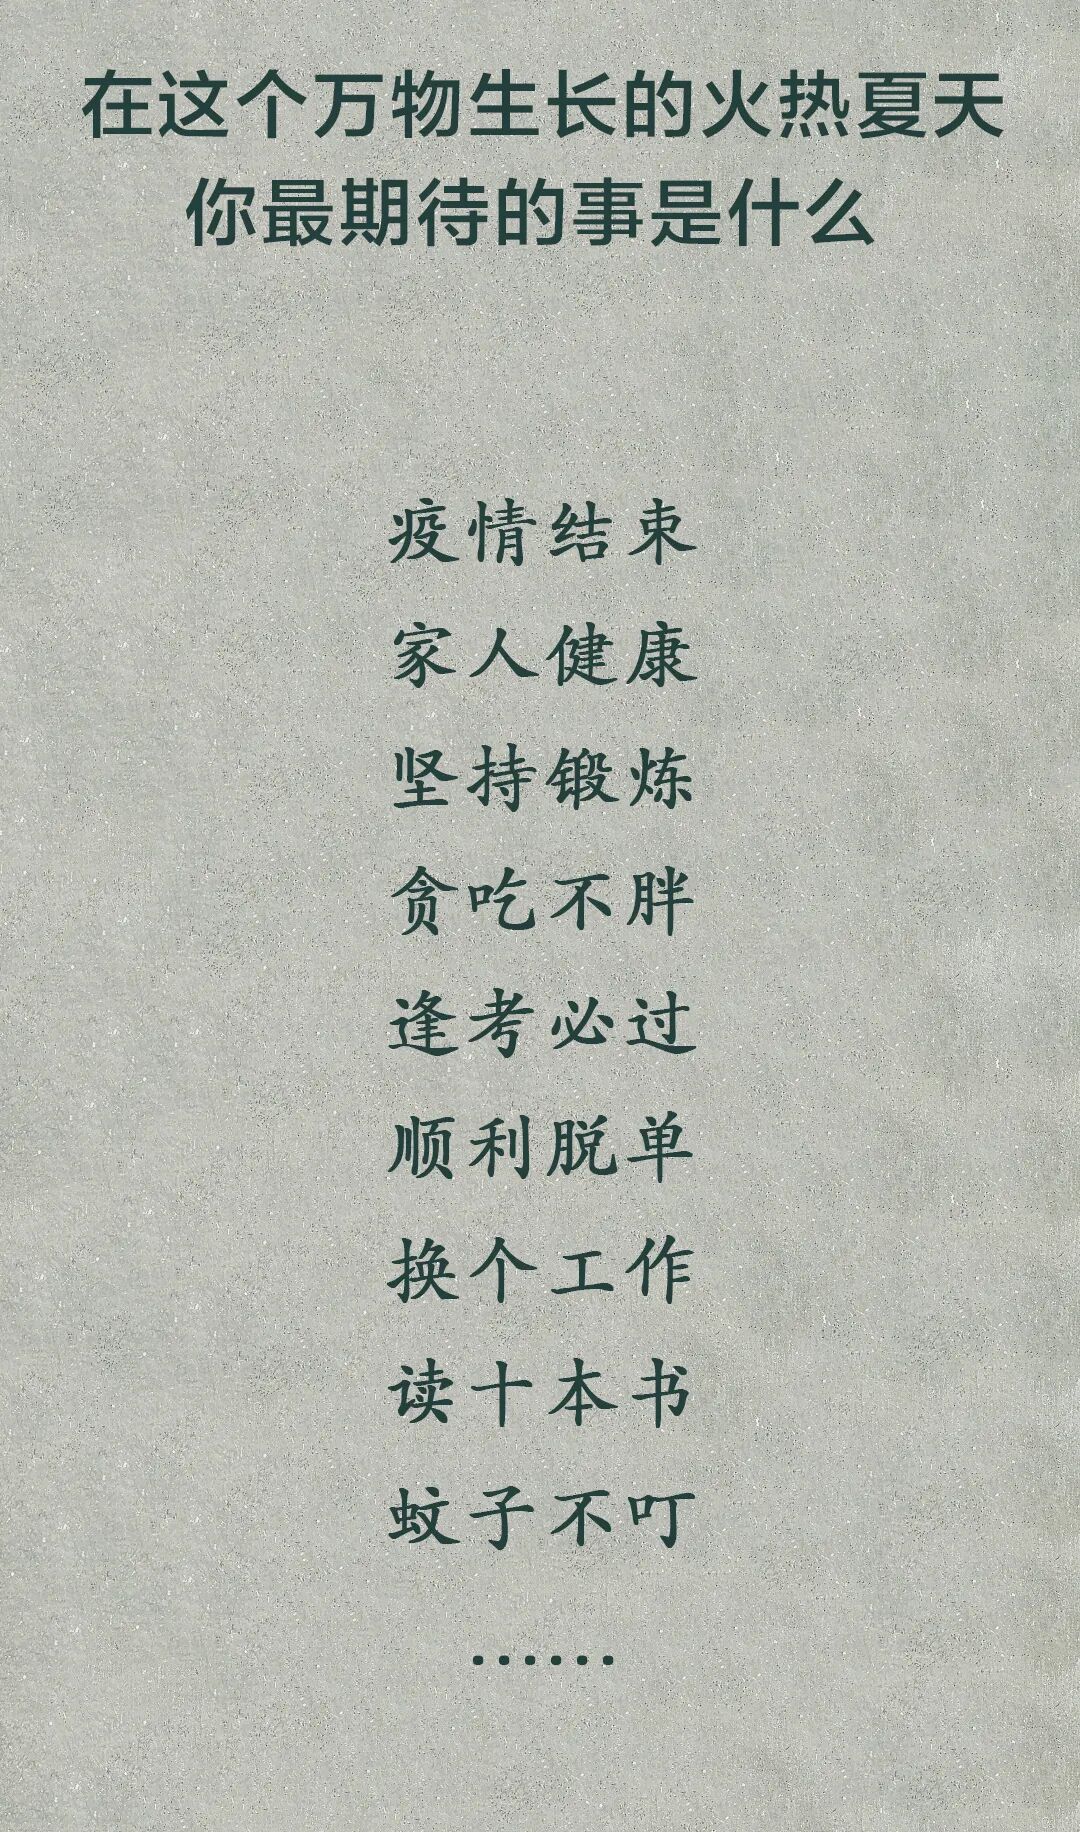 在这个万物生长的火热夏天
你最期待的事是什么
疫情结束
家人健康
坚持锻炼
贪吃不胖
逢考必过
顺利脱单
换个工作
读十本书
蚊子不叮
……